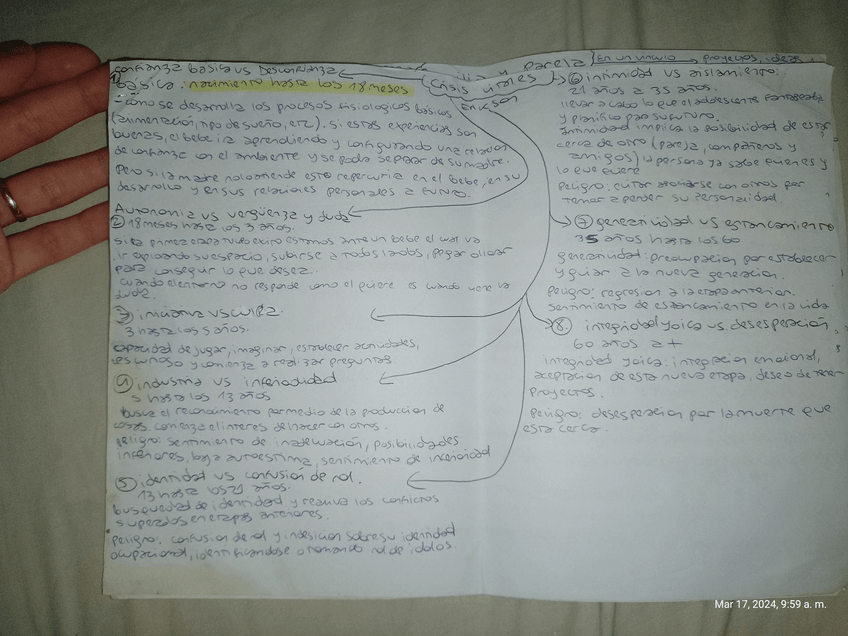 confianza basica vs Desconfianza
① basica: nacimiento hasta los 18 meses
- como se desarrolla los procesos fisiologicos básicos
(alimentacion, tipo de sueño, etc). si estas experiencias son
buenas, el bebe ira aprendiendo y configurando una relacion
de confianza con el ambiente y se podra separar de su madre.
Pero si la madre no lo atiende esto repercutira en el bebe, en su
desarrollo y en sus relaciones personales a futuro.
Autonomia vs vergüenza y duda
② 18 meses hasta los 3 años.
si la primera etapa tubo exito estamos ante un bebe el cual va
ir explorando su espacio, subirse a todos lados, pegar o llorar
para conseguir lo que desea..
cuando el entorno no responde como el quiere es cuando viene la
duda.
3) iniciativa vs culpa.
3 hasta los 5 años.
capacidad de jugar, imaginar, establecer actividades,
es curioso y comienza a realizar preguntas
④ industria vs inferioridad
5 hasta los 13 años
busca el reconocimiento por medio de la produccion de
cosas. comienza el interes de hacer con otros.
peligro: sentimiento de inadecuación, posibilidades
inferiores, baja autoestima, sentimiento de inferioridad
⑤ identidad vs confusión de rol.
13 hasta los 21 años.
busquedad de identidad y reaviva los conflictos
superados en etapas anteriores.
peligro: confusion de rol y indesicion sobre su identidad
ocupacional, identificandose o tomando rol de idolos.
y pareja } En un vinculo → proyectos, ideas
Crisis vitales
Erickson
⑥ intimidad vs aislamiento:
21 años a 35 años.
llevar a cabo lo que el adolescente fantaseaba
y planifico para su futuro.
Intimidad implica la posibilidad de estar
cerca de otro (pareja, compañeros y
amigos) la persona ya sabe quien es y
lo que quiere
Peligro: evitar asociarse con otros por
temor a perder su personalidad.
⑦ generatividad vs estancamiento
35 años hasta los 60
generatividad: preocupacion por establecer
y guiar a la nueva generacion.
peligro: regresion a la etapa anterior.
sentimiento de estancamiento en la vida
⑧. integridad yoica vs. desesperación.
60 años a +
integridad yoica: integracion emocional,
aceptacion de esta nueva etapa, deseo de tener
proyectos.
peligro: desesperacion por la muerte que
esta cerca.
Mar 17, 2024, 9:59 a. m.